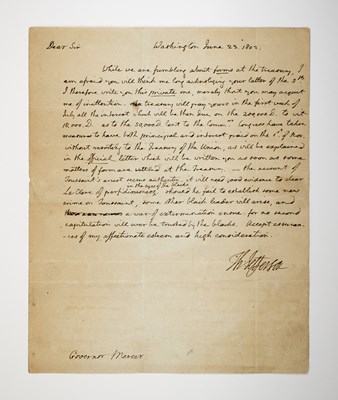 Dear Sir
Washington June 23. 1802.
While we are fumbling about forms at the treasury, I
am afraid you will think me long acknoleging your letter of the 5th
I therefore write you this private one, merely that you may acquit
me of inattention. the treasury will pay yours in the first week of
July all the interest which will be then due on the 200,000 D. to wit
18,000. D. as to the 50,000 lent to the Comm rs Congress have taken
measures to have both principal and interest paid on the 1st of Nov.
without resorting to the Treasury of the Union, as will be explained
in the official letter which will be written you as soon as some
matters of form are settled at the Treasury. — the account of
Toussaint's arrest seems authentic. it will need good evidence to clear
Leclerc of perfidiousness in the eyes of the blacks should he fail to establish some new
crime on Toussaint, some other black leader will arise, and
a war of extermination ensue: for no second
capitulation will ever be trusted by the blacks. Accept assuran-
-ces of my affectionate esteem and high consideration.
Th: Jefferson
Governor Mercer